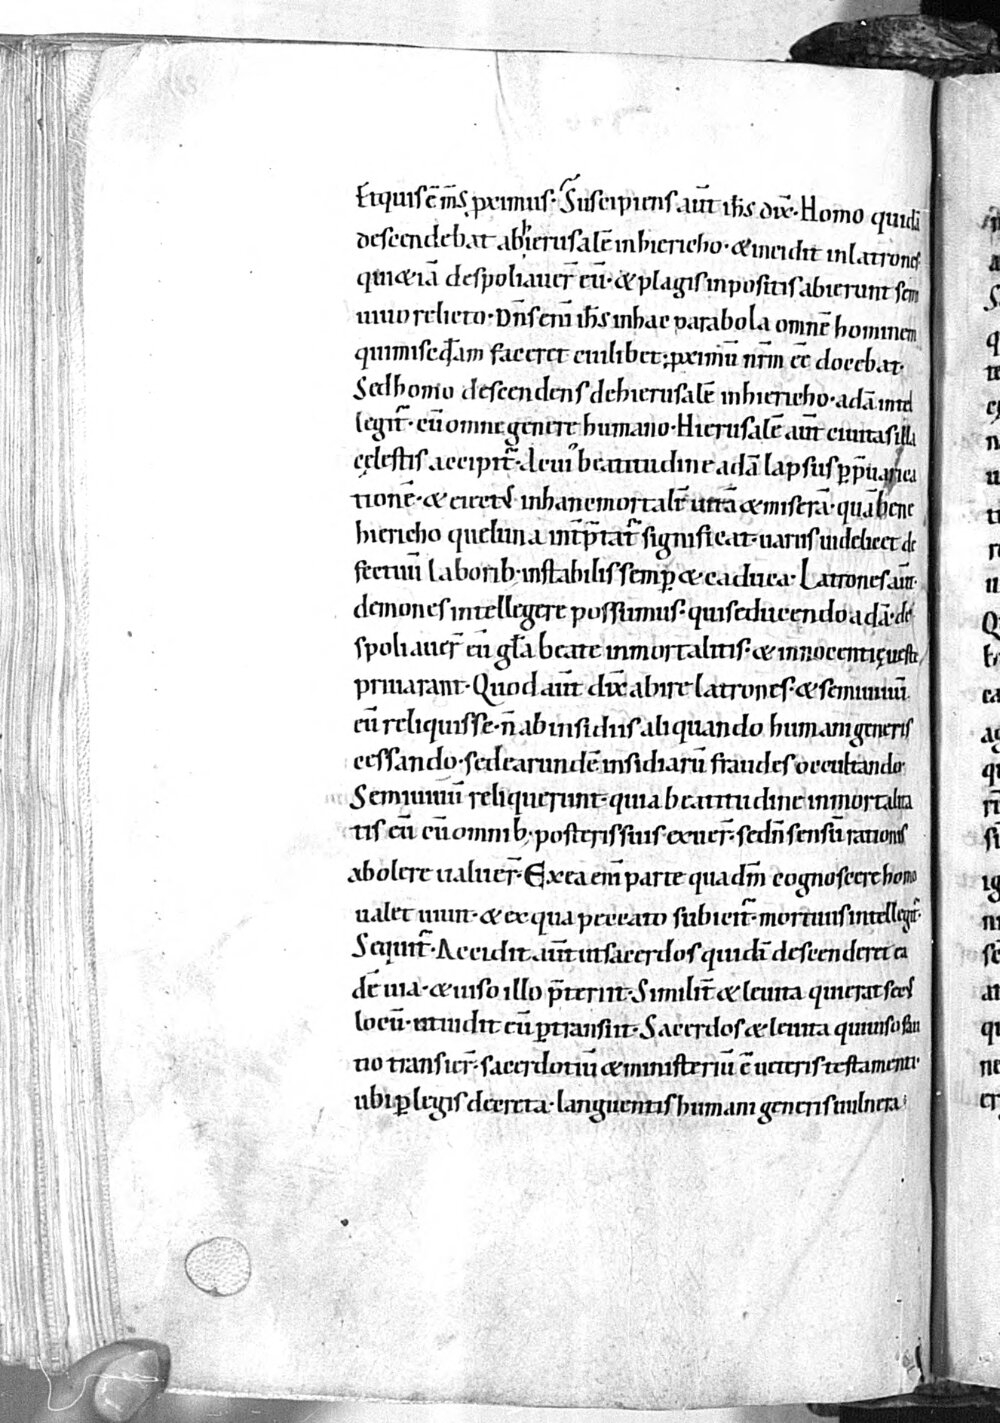 Et quis ē m̄s proximus. Suscipiens aūt ih̄s dix̄. Homo quidā
descendebat ab hierusalē in hiericho. & incidit in latrones
qui & iā despoliauer̄ eū. & plagis inpositis abierunt sem
uiuo relicto. Dn̄s em̄ ih̄s in hac parabola omnē hominem
qui misc̄dam faceret cuilibet; proximū nr̄m eē docebat.
Sed homo descendens de hierusalē in hiericho. adā intel
legit᷑. cū omne genere humano. Hierusalē aūt ciuitas illa
cęlestis accipit᷑. de cui᷒ beatitudine adā lapsus ꝑ p̄uarica
tionē. & in hanc mortalē uitā & miserā. quā bene
hiericho que luna int̄p̄tat᷑ significat. uariis uidelicet de
fectuū laborib. instabilis semꝑ & caduca. Latrones aūt
demones intellegere possumus. qui seducendo adā. de
spoliauer̄ eū gl̄a beate inmortalitis. & innocentię ueste
priuarant. Quod aūt dix̄ abire latrones. & semiuiuū
eū reliquisse. n̄ ab insidiis aliquando humani generis
cessando. sed earundē insidiarū fraudes occultando.
Semiuiuū reliquerunt. quia beatitudine inmortalita
tis eū cū omnib; posteris suis exuer̄. sed n̄ sensū rationis
abolere ualuer̄. Ex ea em̄ parte quadm̄ cognoscere homo
ualet uiuit. & ex qua peccato subieit᷑. mortuus intellegit᷑.
Sequit᷑. Accidit aūt ut sacerdos quidā descenderet ea
dē uia. & uiso illo p̄teriit. Similit̄ & leuita qui erat secs
locū. ut uidit eū ꝑtransiit. Sacerdos & leuita qui uiso sau
tio transier̄. sacerdotiū & ministeriū ē ueteris testamenti.
ubi ꝑ legis decreta. languentis humani generis uulnera